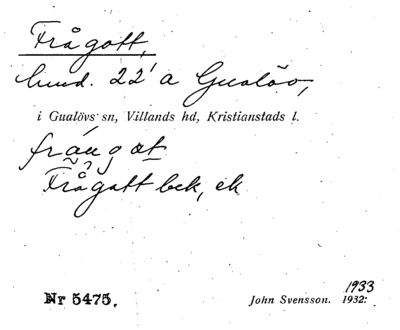 Frågott,
hmd. 22' a Gualöv,
i Gualövs sn, Villands hd, Kristianstads l.
frågot
Frågott bek, ek
Nr 5475.
1933
John Svensson. 1932.